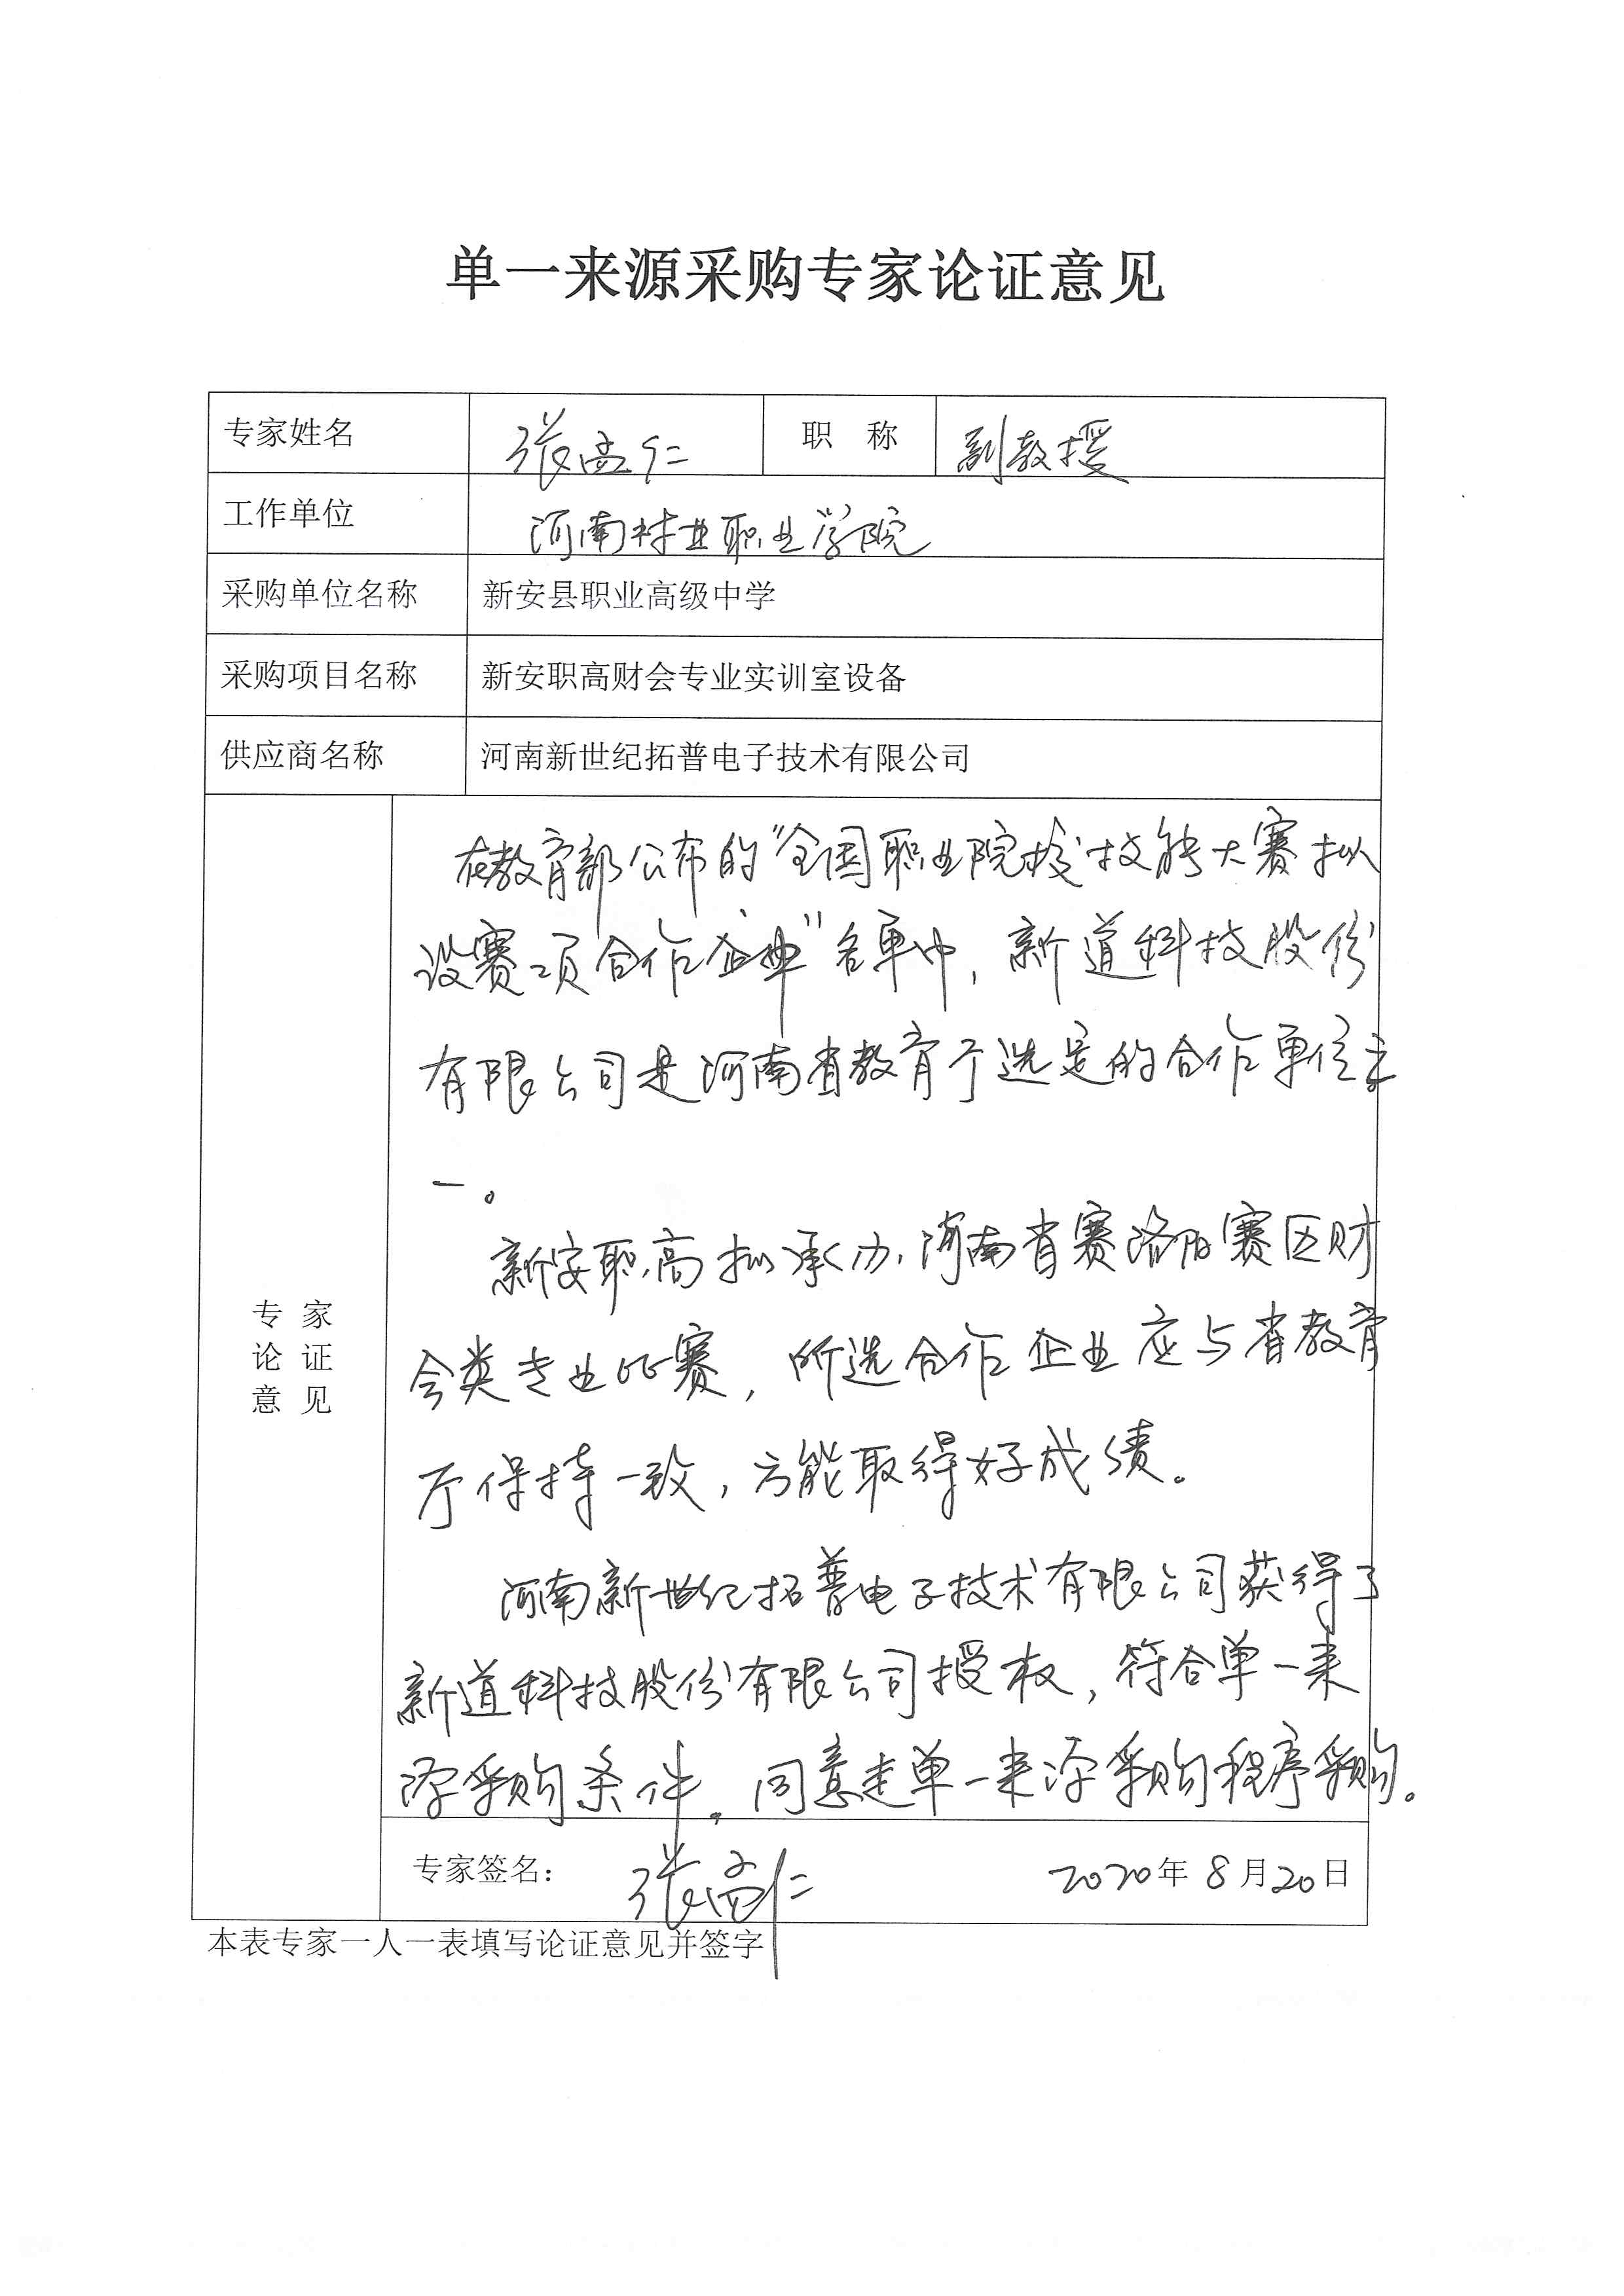 单一来源采购专家论证意见
专家姓名 张孟仁 职 称 副教授
工作单位 河南林业职业学院
采购单位名称 新安县职业高级中学
采购项目名称 新安职高财会专业实训室设备
供应商名称 河南新世纪拓普电子技术有限公司
专家论证意见
在教育部公布的“全国职业院校技能大赛拟
设赛项合作企业”名单中，新道科技股份
有限公司是河南省教育厅选定的合作单位之
一。
新安职高拟承办河南省赛洛阳赛区财
会类专业比赛，所选合作企业应与省教育
厅保持一致，方能取得好成绩。
河南新世纪拓普电子技术有限公司获得了
新道科技股份有限公司授权，符合单一来
源采购条件。同意走单一来源采购程序采购。
专家签名： 张孟仁 2020年8月20日
本表专家一人一表填写论证意见并签字